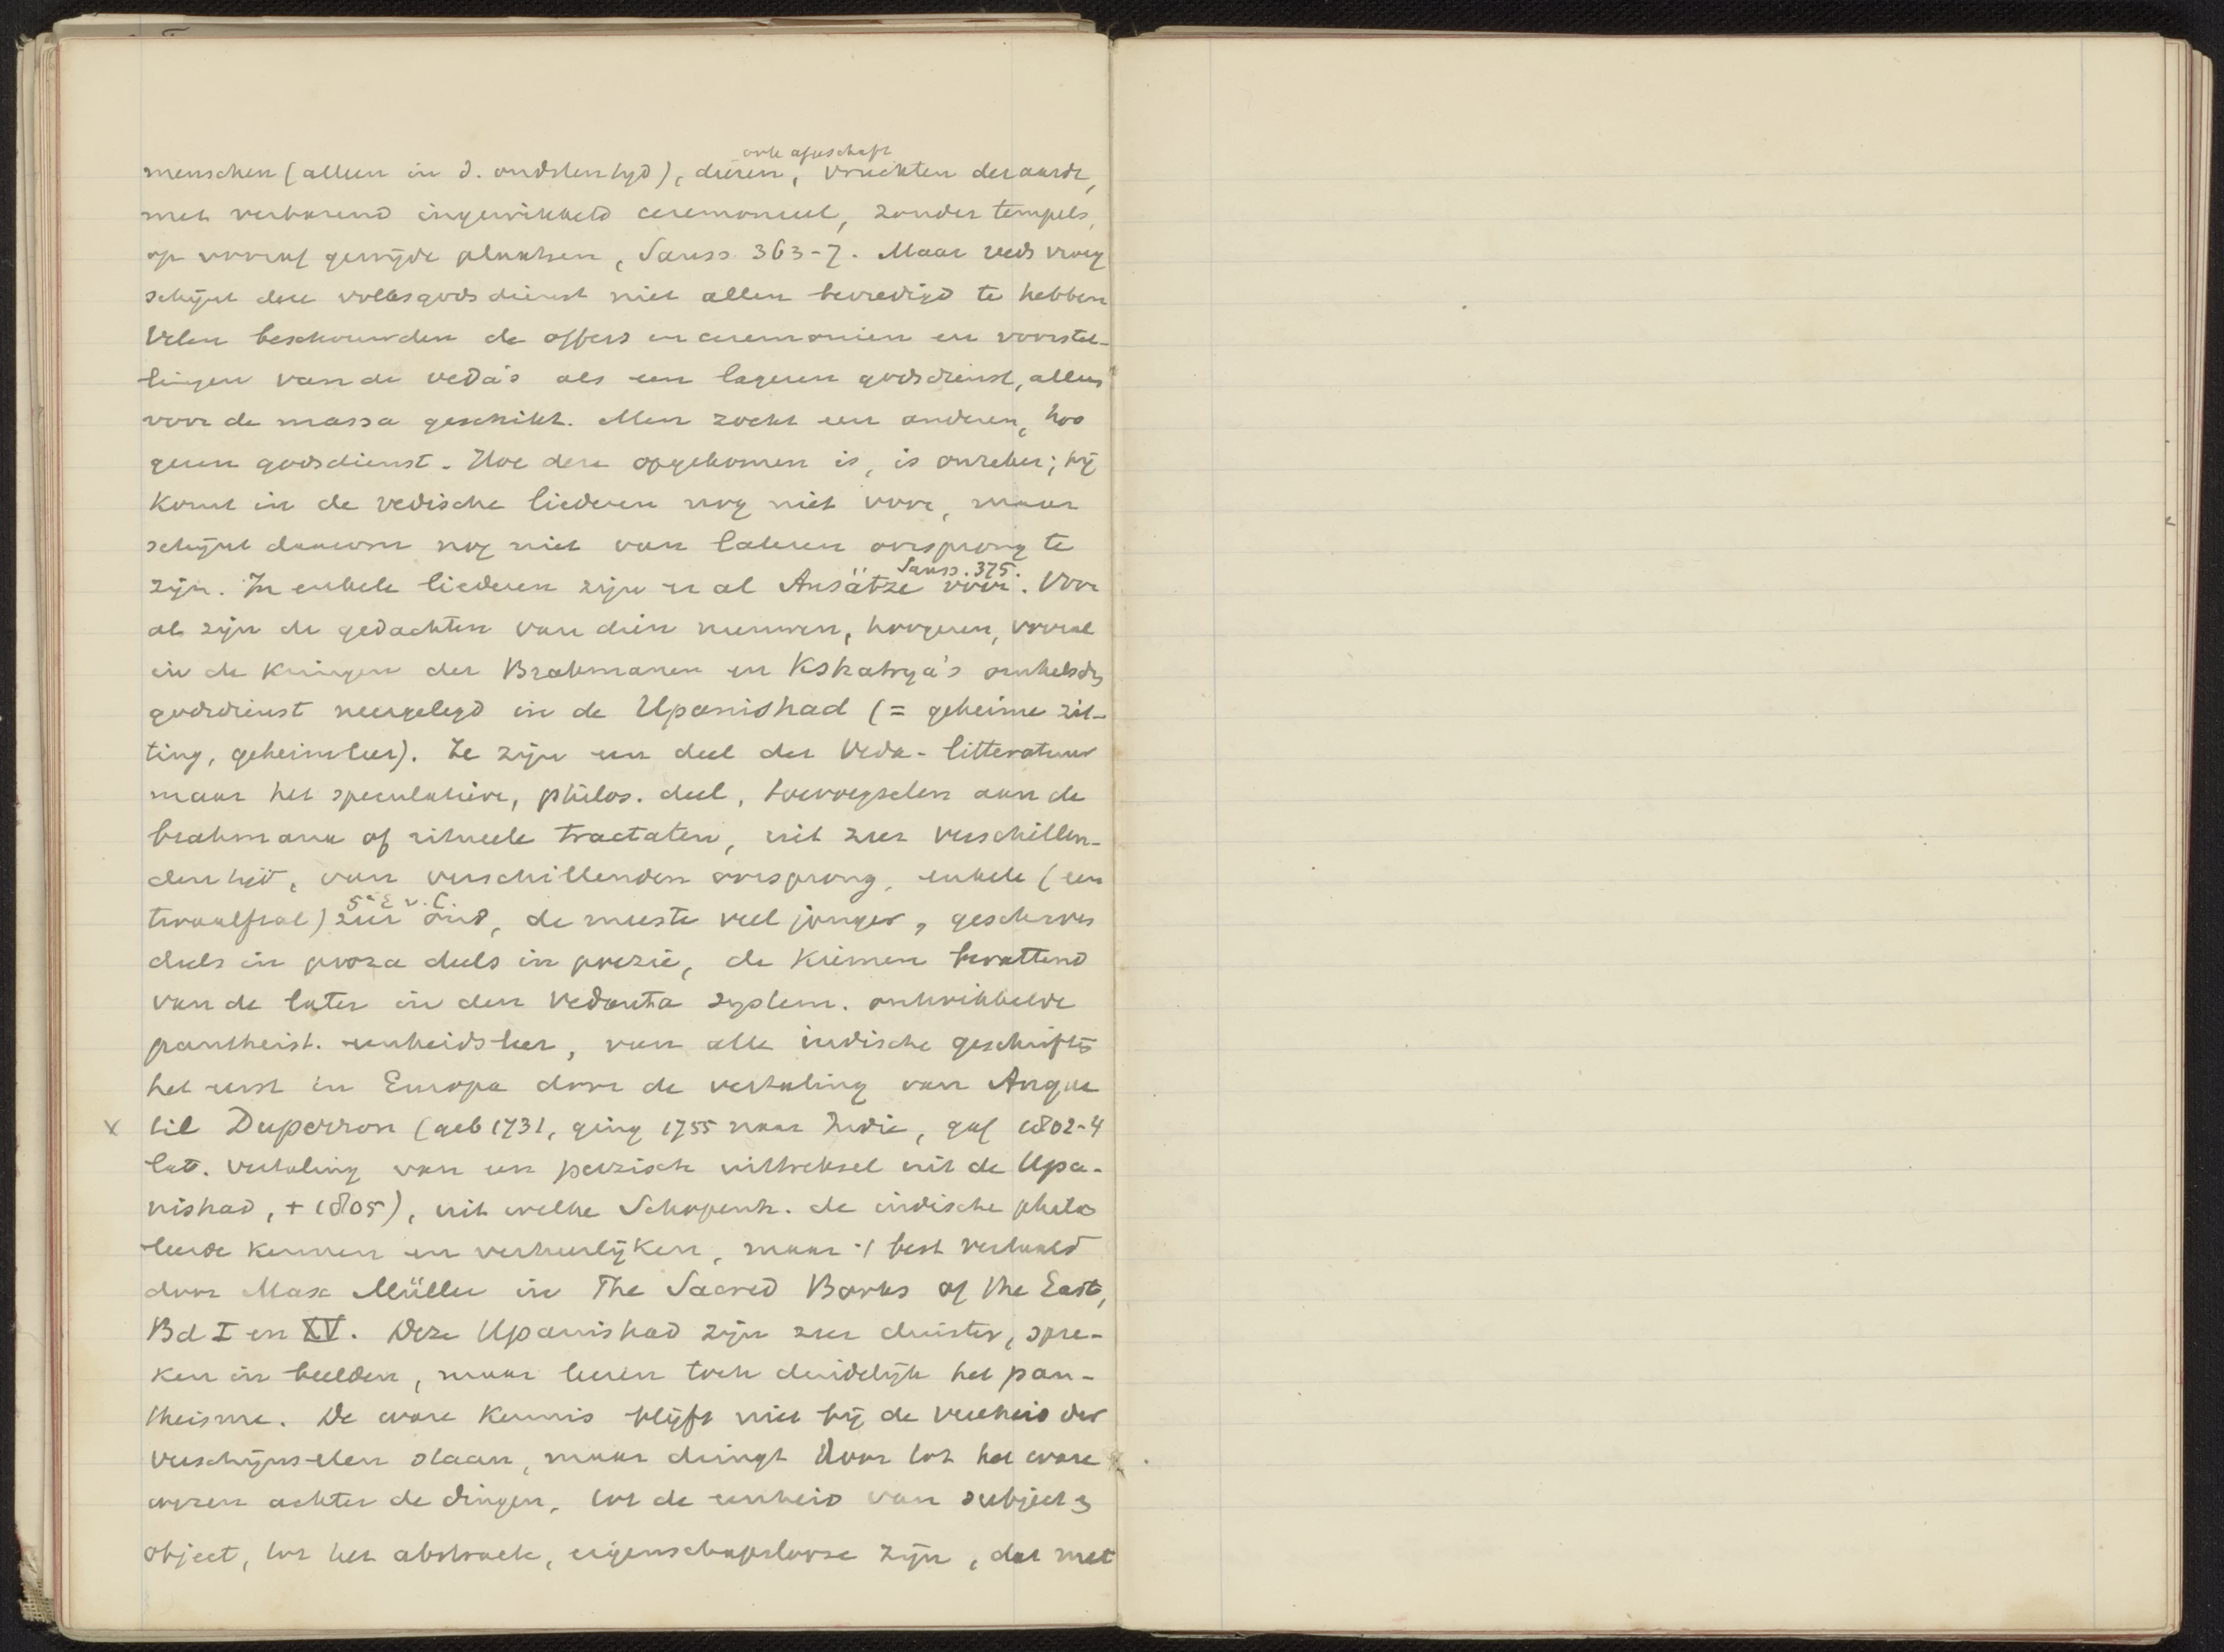 ook afgeschaft
menschen (alleen in d. oudsten tijd), dieren, vruchten der aarde,
met verbazend ingewikkeld ceremonieel, zonder tempels,
op vooraf gewijde plaatsen, Sauss. 363-7. Maar reeds vroeg
schijnt deze volksgodsdienst niet allen bevredigd te hebben
Velen beschouwden de offers en ceremonien en voorstel-
lingen van de veda's als een lageren godsdienst, alleen
voor de massa geschikt. Men zocht een anderen, hoo
geren godsdienst. Hoe deze opgekomen is, is onzeker; hij
komt in de vedische liederen nog niet voor, maar
schijnt daarom nog niet van lateren oorsprong te
zijn. In enkele liederen zijn er al Ansätze voor. Sauss. 375. Voor
al zijn de gedachten van dien nieuwen, hoogeren, vooral
in de kringen der Brahmanen en Kshatrya's omhelsde
godsdienst neergelegd in de Upanishad (= geheime zit-
ting, geheimleer). Ze zijn een deel der Veda-litteratuur
maar het speculatieve, philos. deel, toevoegselen aan de
brahmana of ritueele tractaten, uit zeer verschillen-
den tijd, van verschillenden oorsprong, enkele (een
twaalftal) zeer oud, 5e E v. C. de meeste veel jonger, geschreven
deels in proza deels in poezie, de kiemen bevattend
van de later in den Vedanta system. ontwikkelde
pantheist. eenheidsleer, van alle indische geschriften
het eerst in Europa door de vertaling van Anque
x til Duperron (geb 1731, ging 1755 naar Indie, gaf 1802-4
lat. vertaling van een perzisch uittreksel uit de Upa-
nishad, + 1805), uit welke Schopenh. de indische philos
leerde kennen en verheerlijken, maar 't best vertaald
door Max Müller in The Sacred Books of the East,
Bd I en XV. Deze Upanishad zijn zeer duister, spre-
ken in beelden, maar leeren toch duidelijk het pan-
theisme. De ware kennis blijft niet bij de veelheid der
verschijnselen staan, maar dringt door tot het ware
wezen achter de dingen, tot de eenheid van subject en
object, tot het abstracte, eigenschapslooze zijn, dat met